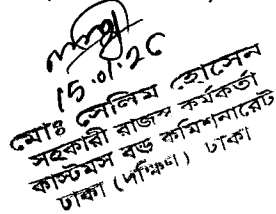 15.01.26
মোঃ সেলিম হোসেন
সহকারী রাজস্ব কর্মকর্তা
কাস্টমস বন্ড কমিশনারেট
ঢাকা (দক্ষিণ) ঢাকা